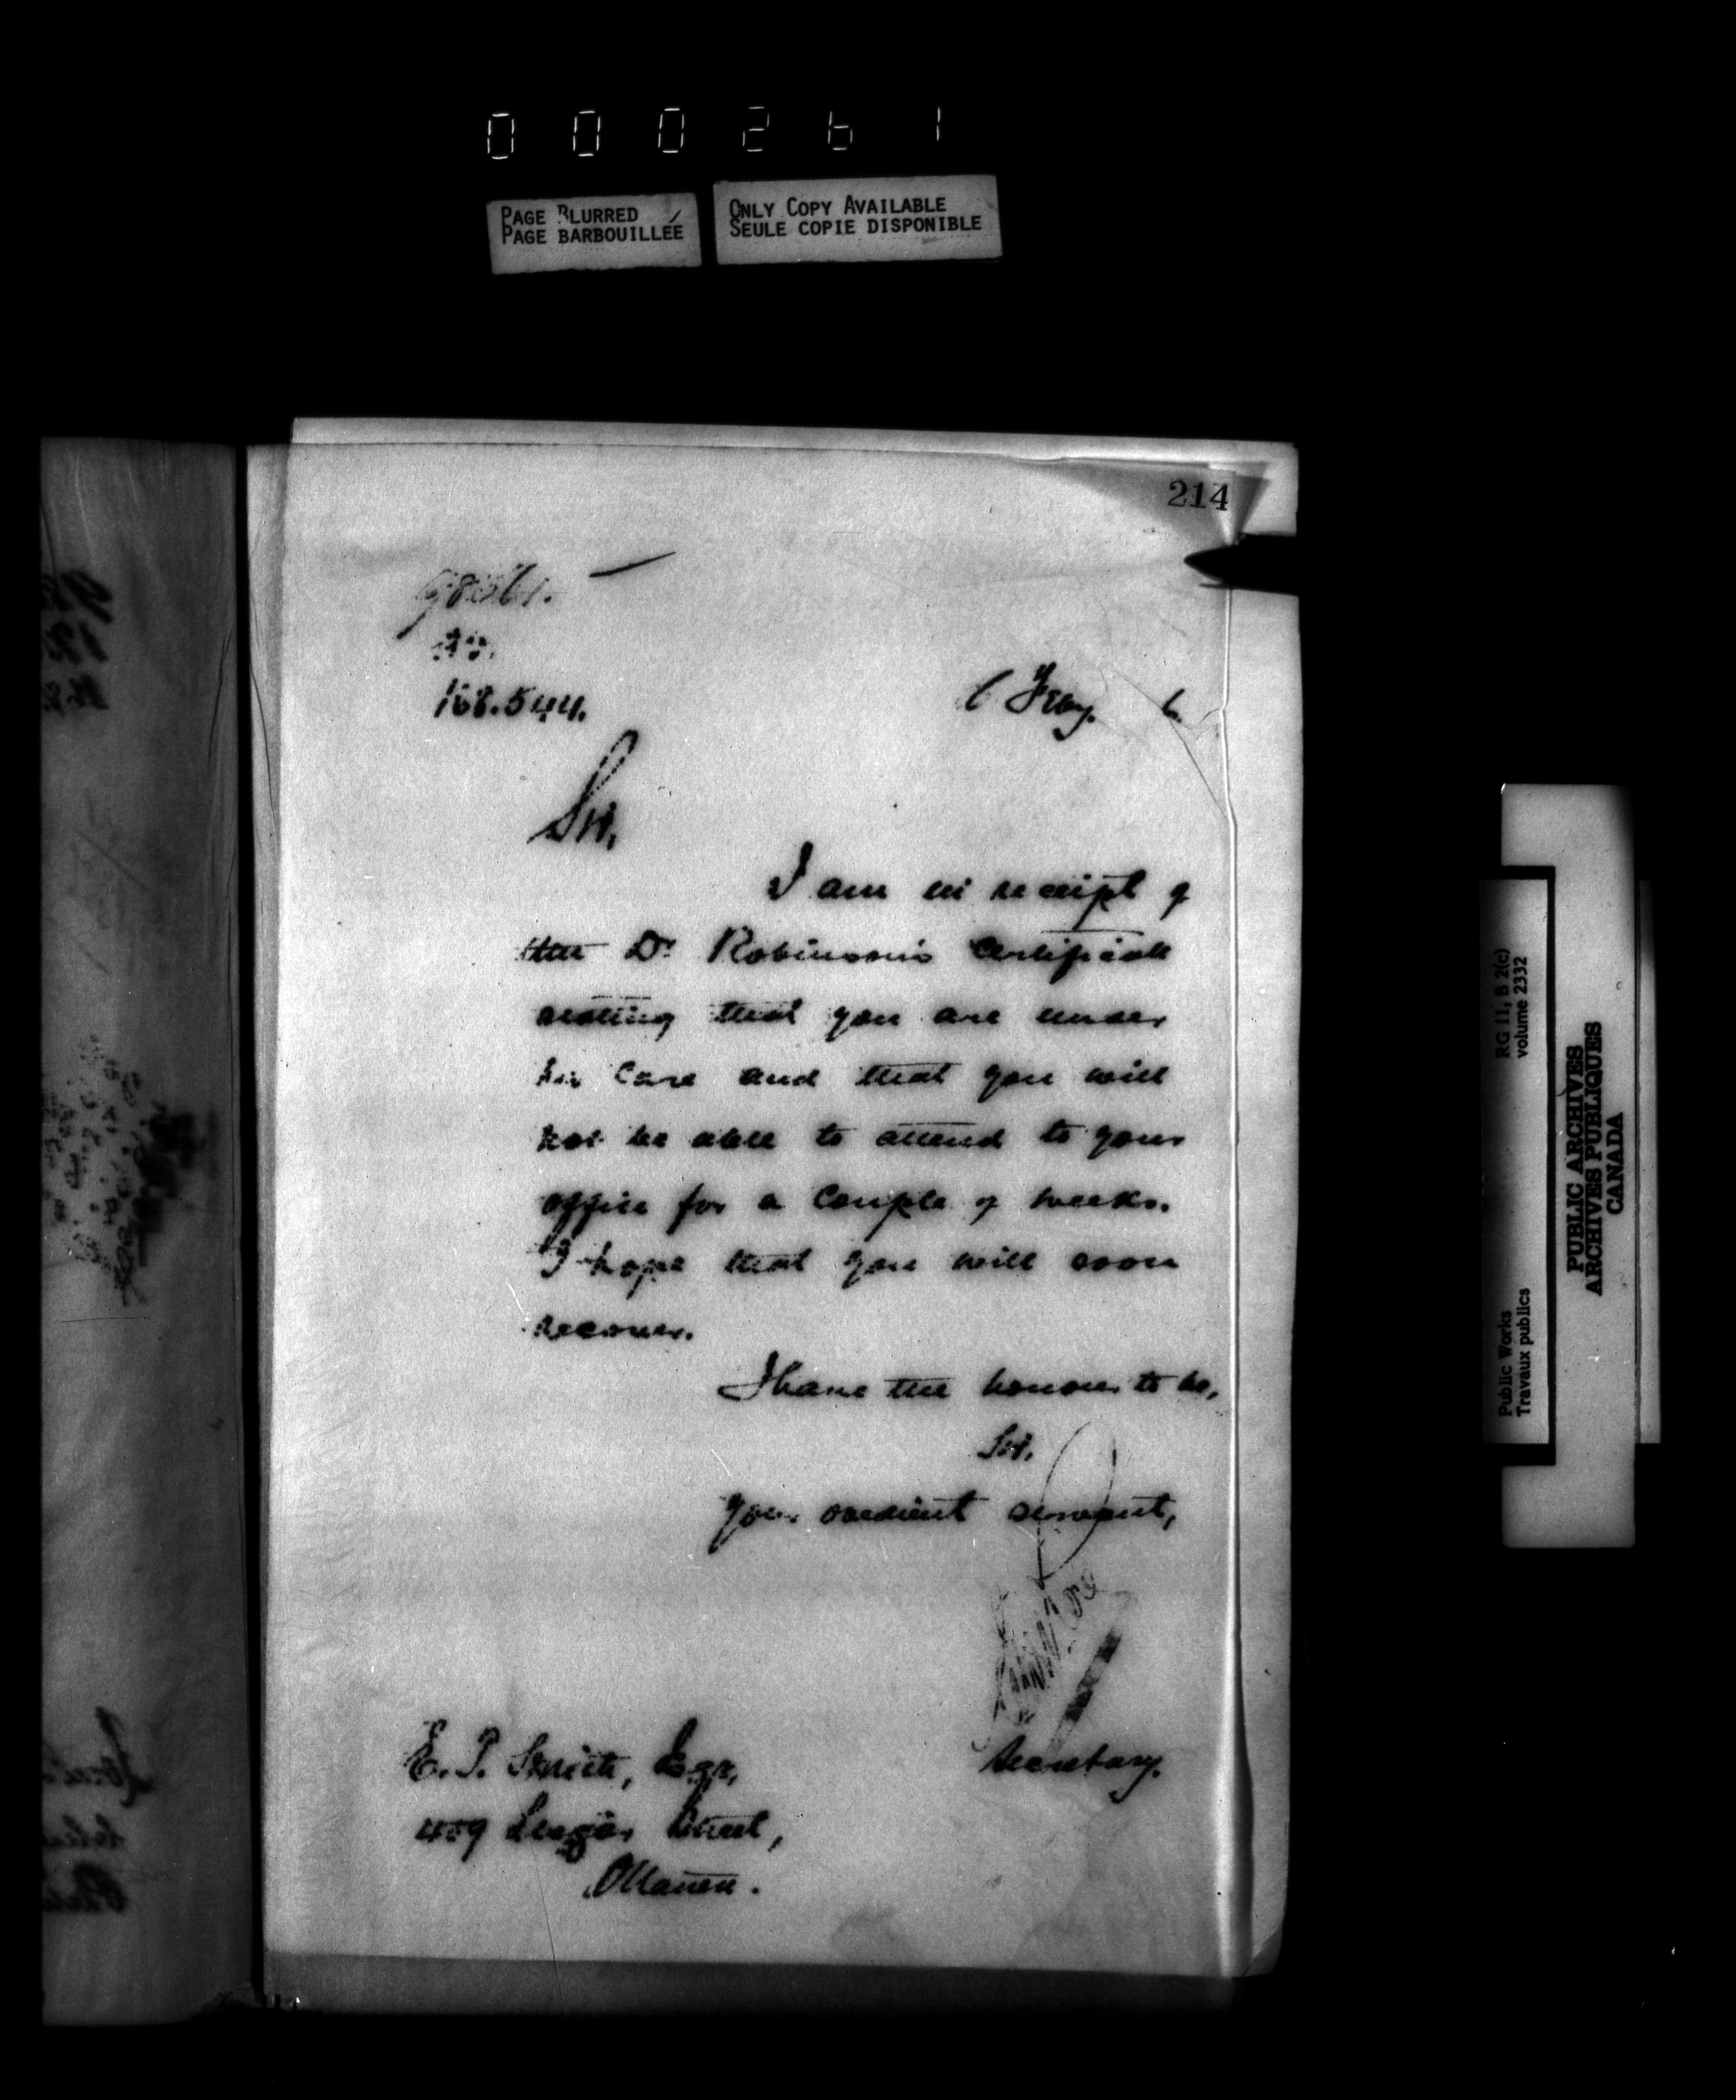 000261
PAGE BLURRED
PAGE BARBOUILLÉE
ONLY COPY AVAILABLE
SEULE COPIE DISPONIBLE
214
168.544.
6 Feby. 6
Sir,
I am in receipt of
Dr Robinson's Certificate
stating that you are under
his care and that you will
not be able to attend to your
office for a couple of weeks.
I hope that you will soon
recover.
I have the honour to be,
Sir,
Your obedient servant,
Secretary.
E. P. Smith, Esqr,
Street,
Ottawa.
RG 11, B 2(c)
volume 2332
Public Works
Travaux publics
PUBLIC ARCHIVES
ARCHIVES PUBLIQUES
CANADA